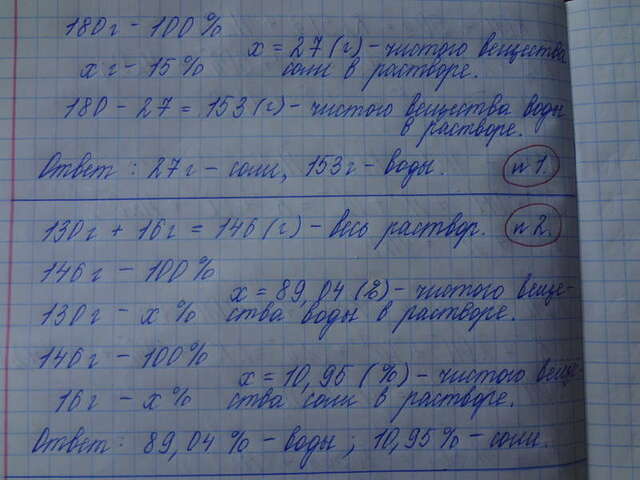 180 г - 100 %
х = 27 (г) - чистого вещества
х г - 15 %
соли в растворе.
180 - 27 = 153 (г) - чистого вещества воды
в растворе.
Ответ : 27 г - соли, 153 г - воды.
п 1.
130 г + 16 г = 146 (г) - весь раствор.
п 2.
146 г - 100 %
х = 89,04 (%) - чистого веще-
130 г - х %
ства воды в растворе.
146 г - 100 %
х = 10,95 (%) - чистого веще-
16 г - х %
ства соли в растворе.
Ответ : 89,04 % - воды ; 10,95 % - соли.